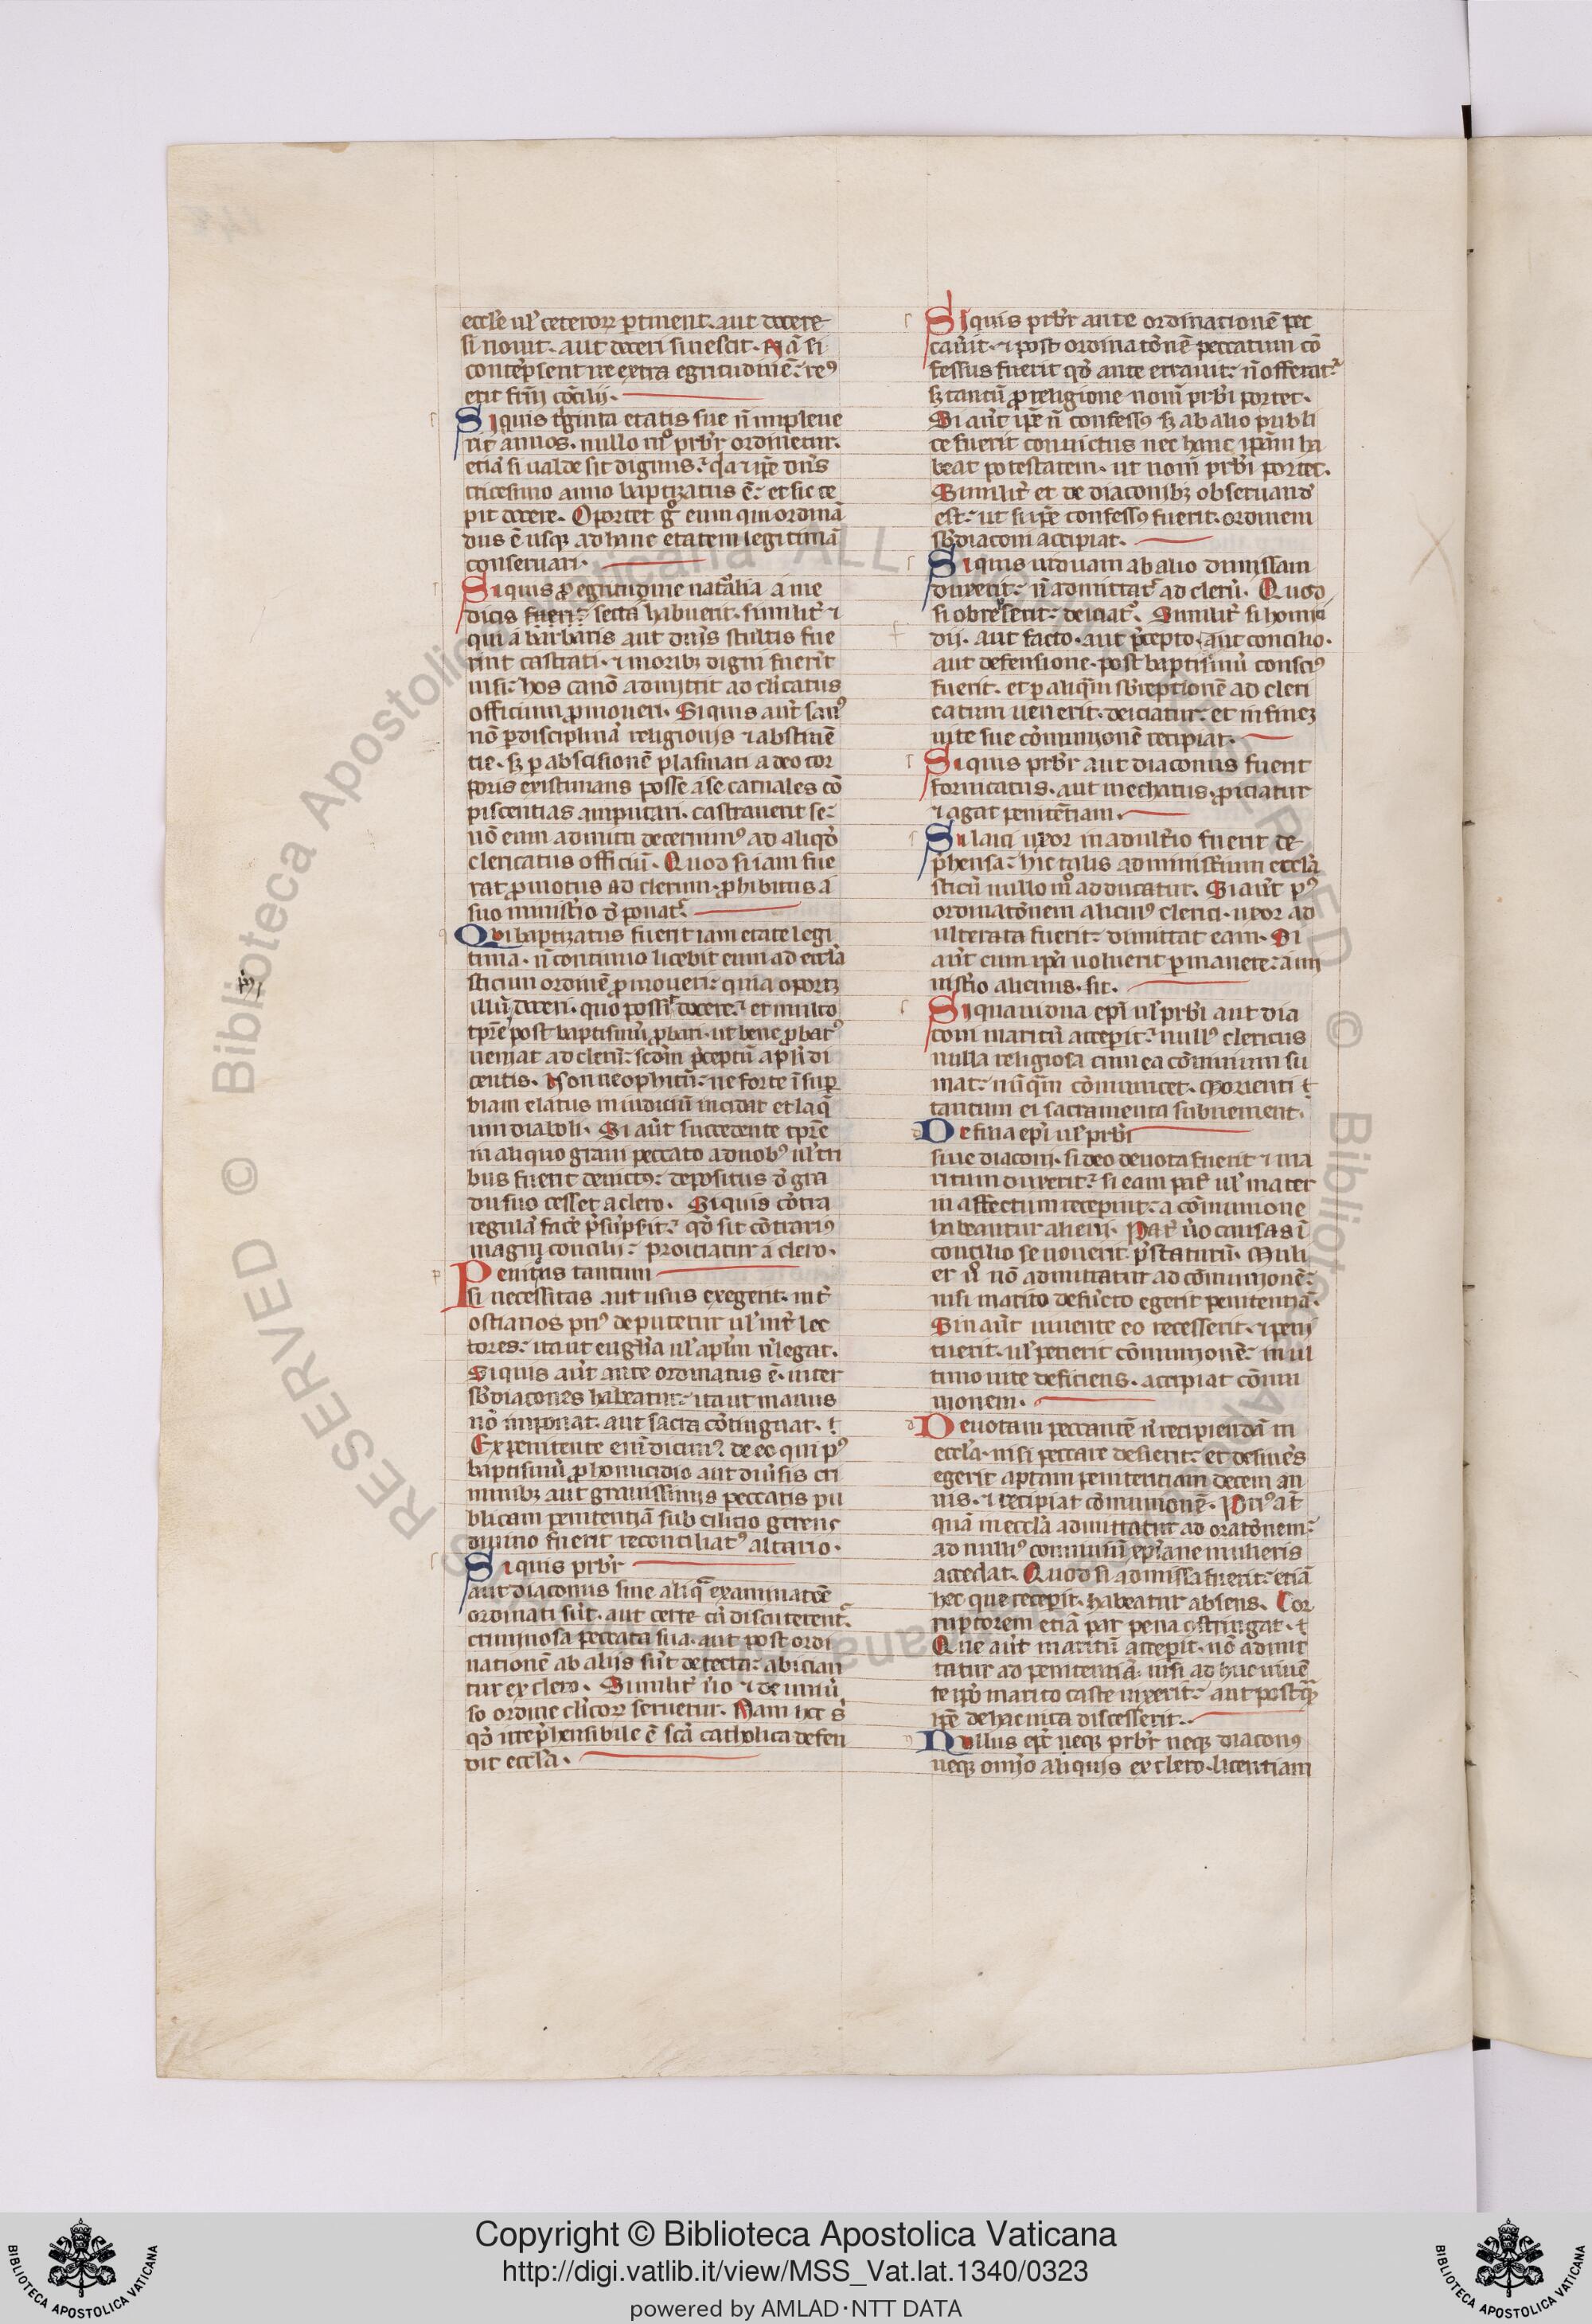 eccl'e ul' ceterorꝝ ꝑtinent. aut docere
si nouit. aut doceri si nescit. Nā si
contēpserit ne extra egritudinē: reꝰ
erit frīj cōcilij.
Si quis tͥginta etatis sue n̄ impleue
rit annos. nullo mͦ prb'r ordinetur.
etiā si ualde sit dignus: qͥa ⁊ ip̄e dn̄s
tricesimo anno baptizatus ē: et sic ce
pit docere. Oportet gͦ eum qui ordinā
dus ē usqꝫ ad hanc etatem legitimā
conseruari.
Si quis ꝓ egritudine natͣlia a me
dicis fuerīt secta habuerit. similit' ⁊
qui a barbaris aut dn̄is stultis fue
rint castrati. ⁊ moribꝫ digni fuerīt
uisi: hos canō admittit ad cl'icatus
officium ꝓmoueri. Si quis aūt sanꝰ
nō ꝑ disciplinā religionis ⁊ abstinē
tie. sꝫ ꝑ abscisionē plasmati a deo cor
poris existimans posse a se carnales cō
piscentias amputari. castrauerit se:
nō eum admitti decernimꝰ ad aliqd'
clericatus officiū. Quod si iam fue
rat ꝓmotus ad clerum. ꝓhibitus a
suo minist'io d'ponat᷑.
Qui baptizatus fuerit iam etate legi
tima. n̄ continuo licebit eum ad eccl'a
sticum ordinē ꝓmoueri: quia oportꝫ
illū doceri. quo possit docere: et multo
tp̄re post baptismū ꝓbari. ut bene ꝓbatꝰ
ueniat ad clerū: scd'm p̄ceptū ap'li di
centis. Non neophitū: ne forte ī suꝑ
biam elatus in iudiciū incidat et laq̄
um diaboli. Si aūt succedente tp̄re
in aliquo graui peccato a duobꝰ ul' tri
bus fuerit deuictꝰ: depositus d' gra
du suo cesset a clero. Si quis cōtra
regulā facere p̄sūpserit: qd' sit cōtrariꝰ
magni concilij: proiciatur a clero.
Penitēs tantum
si necessitas aut usus exegerit. int'
ostiarios priꝰ deputetur ul' int' lec
tores: ita ut eugl'ia ul' ap'lm n̄ legat.
Si quis aūt ante ordinatus ē. inter
sb'diacones habeatur: ita ut manus
nō imponat. aut sacra cōtingnat. ⁊
Ex penitente eni dicimꝰ. de eo qui pꝰ
baptismū ꝓ homicidio aut diu'sis cri
minibꝫ aut grauissimis peccatis pu
blicam penitentiā sub cilicio gerens
diuino fuerit reconciliatꝰ altario.
Si quis prb'r
aut diaconus sine aliqͣ examinatōe
ordinati sūt. aut certe cū discuterent᷑.
criminosa peccata sua. aut post ordi
nationē ab alijs sūt detecta: abician
tur ex clero. Similit' ūo ⁊ de uniū
so ordine cl'icorꝝ seruetur. Nam hec s̄
qd' irrep̄hensibile ē scā catholica defen
dit eccl'a.
Si quis prb'r ante ordinationē pec
cauit. ⁊ post ordinatōnē peccatum cō
fessus fuerit qd' ante errauit: n̄ offerat᷑
sꝫ tantū ꝓ religione nom̄ prb'i portet.
Si aūt ip̄e n̄ confessꝰ sꝫ ab alio publi
ce fuerit conuictus nec hanc ip̄am ha
beat potestatem. ut nom̄ prb'i portet.
Similit' et de diaconibꝫ obseruand'
est: ut si ip̄e confessꝰ fuerit. ordinem
sb'diaconi accipiat.
Si quis uiduam ab alio dimissam
duxerit: n̄ admittat᷑ ad clerū. Quod
si obrepserit: deiciat᷑. Similit' si homici
dij. aut facto. aut p̄cepto. aut concilio.
aut defensione. post baptismū consciꝰ
fuerit. et ꝑ aliq̄m sb'reptionē ad cleri
catum uenerit. deiciatur: et in finez
uite sue cōmunionē recipiat.
Si quis prb'r aut diaconus fuerit
fornicatus. aut mechatus. ꝓiciatur
⁊ agat penitētiam.
Si laici uxor in adult'io fuerit de
p̄hensa: hic talis ad ministerium eccl'a
sticū nullo mͦ adducatur. Si aūt pꝰ
ordinatōnem alicuiꝰ clerici. uxor ad
ulterata fuerit: dimittat eam. Si
aūt cum ip̄a uoluerit ꝑmanere: a mi
nist'io alienus. sit.
Si qua uidua ep̄i ul' prb'i aut dia
coni maritū acceperit: nullꝰ clericus
nulla religiosa cum ea cōuiuium su
mat: nūq̄m cōmunicet. Morienti ⁊
tantum ei sacramenta subueniēnt.
De filia ep̄i ul' prb'i
siue diaconi. si deo deuota fuerit ⁊ ma
ritum duxerit: si eam pat' ul' mater
in affectum receperint: a cōmunione
habeantur alieni. Pat' ūo causas ī
concilio se nouerit p̄staturū. Muli
er ūo nō admittatur ad cōmunionē:
nisi marito defūcto egerit penitentiā.
Sin aūt uiuente eo recesserit. ⁊ peni
tuerit. ul' petierit cōmunionē: in ul
timo uite deficiens. accipiat cōmu
nionem.
Deuotam peccantē n̄ recipiendā in
eccl'a. nisi peccare desierit: et desinēs
egerit aptam penitentiam decem an
nis. ⁊ recipiat cōmunionē. Priꝰ at'
quā in eccl'a admittatur ad oratōnem:
ad nulliꝰ conuiuiū xp̄iane mulieris
accedat. Quod si admissa fuerit: etiā
hec que recepit. habeatur absens. Cor
ruptorem etiā par pena cstringat. ⁊
Que aūt maritū acceperit. nō admit
tatur ad penitentiā. nisi ad huc uiuē
te ip̄o marito caste uixerit: aut postq̄
ip̄e de hac uita discesserit.
Nullus ep̄c neqꝫ prb'r neqꝫ diaconꝰ
neqꝫ omīo aliquis ex clero. licentiam
Copyright © Biblioteca Apostolica Vaticana
http://digi.vatlib.it/view/MSS_Vat.lat.1340/0323
powered by AMLAD·NTT DATA